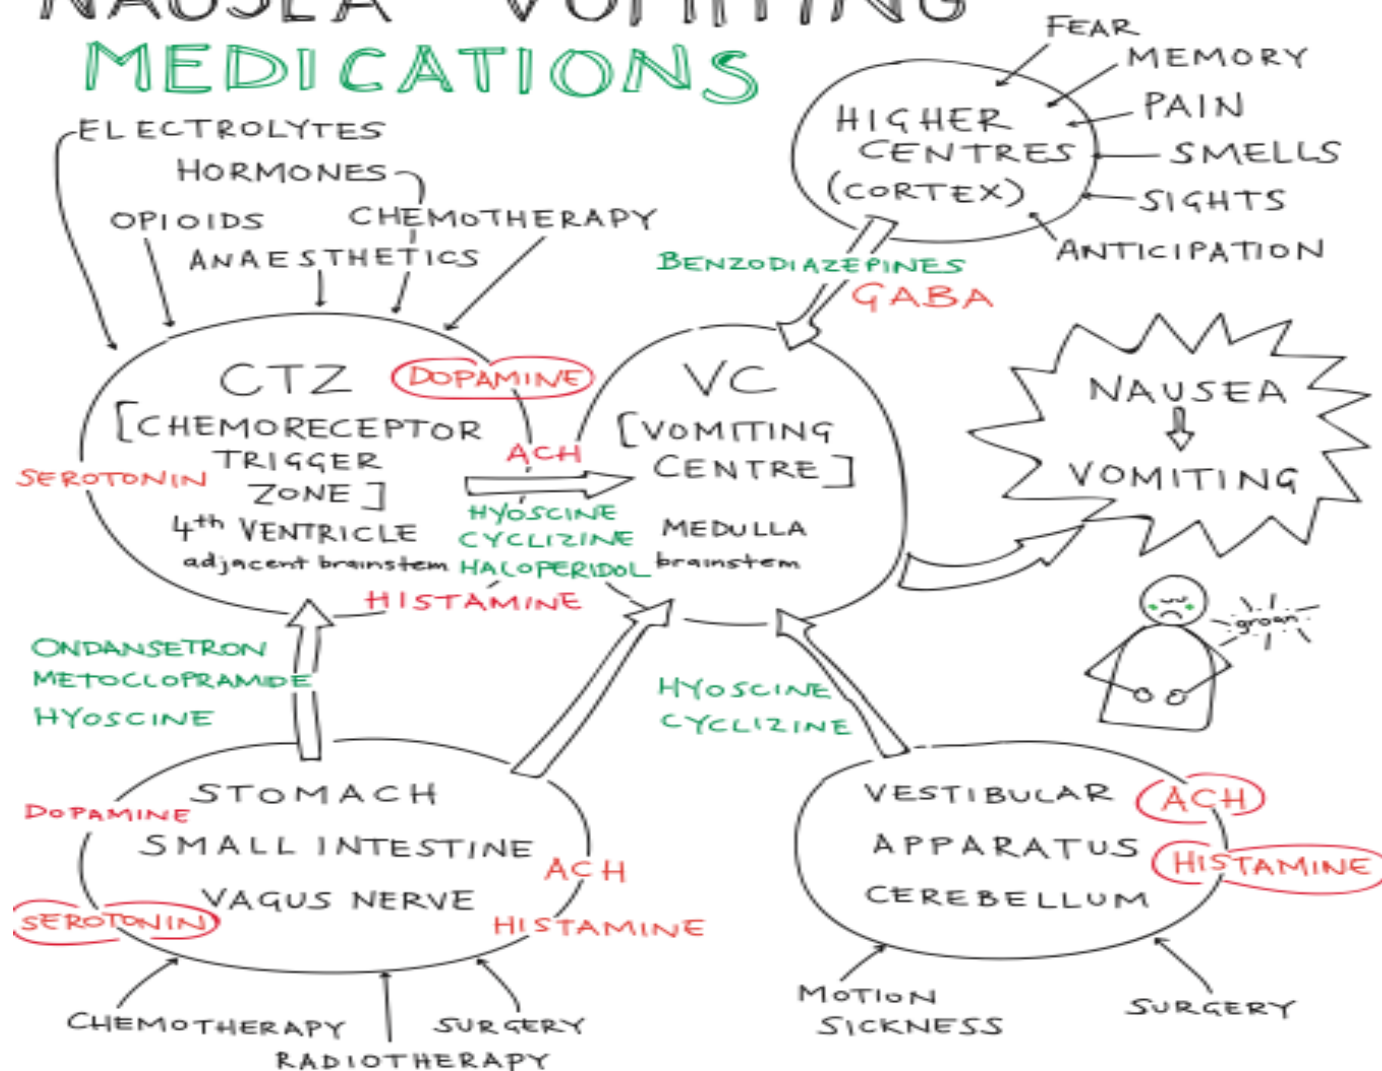 NAUSEA VOMITING
MEDICATIONS
ELECTROLYTES
HORMONES
OPIOIDS
CHEMOTHERAPY
ANAESTHETICS
FEAR
MEMORY
PAIN
SMELLS
SIGHTS
ANTICIPATION
HIGHER
CENTRES
(CORTEX)
BENZODIAZEPINES
GABA
CTZ
DOPAMINE
[CHEMORECEPTOR
TRIGGER
ZONE]
SEROTONIN
4th VENTRICLE
adjacent brainstem
ACH
HYOSCINE
CYCLIZINE
HALOPERIDOL
HISTAMINE
VC
[VOMITING
CENTRE]
MEDULLA
brainstem
NAUSEA
VOMITING
groan
ONDANSETRON
METOCLOPRAMIDE
HYOSCINE
HYOSCINE
CYCLIZINE
STOMACH
DOPAMINE
SMALL INTESTINE
ACH
VAGUS NERVE
SEROTONIN
HISTAMINE
CHEMOTHERAPY
RADIOTHERAPY
SURGERY
VESTIBULAR
ACH
APPARATUS
HISTAMINE
CEREBELLUM
MOTION
SICKNESS
SURGERY